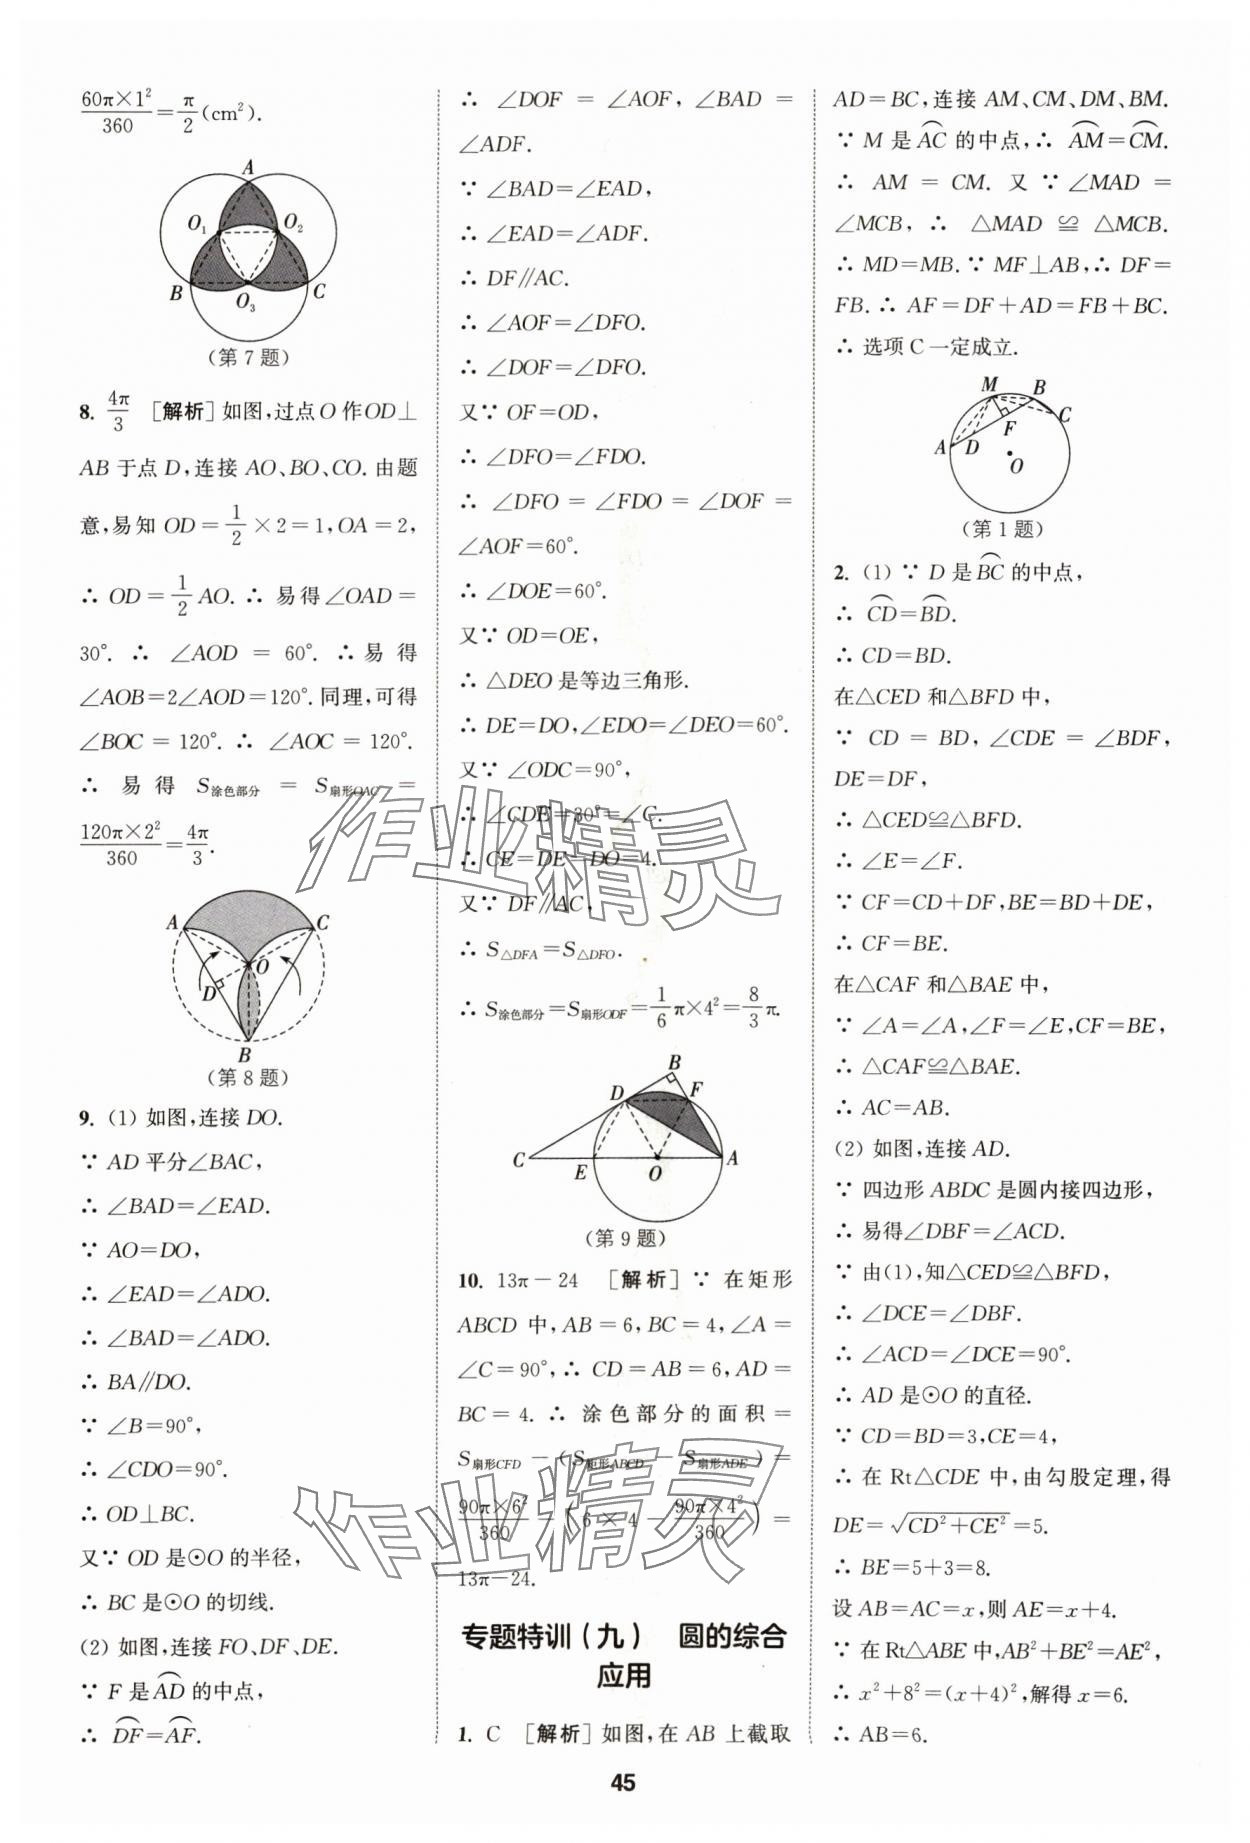 60π×1²/360=π/2(cm²).
A
O₁ O₂
B O₃ C
(第7题)
8. 4π/3 [解析]如图,过点O作OD⊥
AB于点D,连接AO、BO、CO.由题
意,易知OD=1/2×2=1,OA=2,
∴ OD=1/2AO.∴ 易得∠OAD=
30°.∴ ∠AOD=60°.∴易得
∠AOB=2∠AOD=120°.同理,可得
∠BOC=120°.∴ ∠AOC=120°.
∴ 易得 S涂色部分=S扇形OAC=
120π×2²/360=4π/3.
A C
O
D
B
(第8题)
9. (1) 如图,连接DO.
∵ AD平分∠BAC,
∴ ∠BAD=∠EAD.
∵ AO=DO,
∴ ∠EAD=∠ADO.
∴ ∠BAD=∠ADO.
∴ BA∥DO.
∵ ∠B=90°,
∴ ∠CDO=90°.
∴ OD⊥BC.
又∵ OD是⊙O的半径,
∴ BC是⊙O的切线.
(2) 如图,连接FO、DF、DE.
∵ F是⌒AD的中点,
∴ ⌒DF=⌒AF.
∴ ∠DOF=∠AOF,∠BAD=
∠ADF.
∵ ∠BAD=∠EAD,
∴ ∠EAD=∠ADF.
∴ DF∥AC.
∴ ∠AOF=∠DFO.
∴ ∠DOF=∠DFO.
又∵ OF=OD,
∴ ∠DFO=∠FDO.
∴ ∠DFO=∠FDO=∠DOF=
∠AOF=60°.
∴ ∠DOE=60°.
又∵ OD=OE,
∴ △DEO是等边三角形.
∴ DE=DO,∠EDO=∠DEO=60°.
又∵ ∠ODC=90°,
∴ ∠CDE=30°=∠C.
∴ CE=DE=DO=4.
又∵ DF∥AC,
∴ S△DFA=S△DFO.
∴ S涂色部分=S扇形ODF=1/6π×4²=8/3π.
B
D F
C E O A
(第9题)
10. 13π-24 [解析]∵ 在矩形
ABCD中,AB=6,BC=4,∠A=
∠C=90°,∴ CD=AB=6,AD=
BC=4.∴ 涂色部分的面积=
S扇形CFD-(S矩形ABCD-S扇形ADE)=
90π×6²/360-(6×4-90π×4²/360)=
13π-24.
专题特训(九) 圆的综合
应用
1. C [解析]如图,在AB上截取
AD=BC,连接AM、CM、DM、BM.
∵ M是⌒AC的中点,∴ ⌒AM=⌒CM.
∴ AM=CM.又∵∠MAD=
∠MCB,∴ △MAD≌△MCB.
∴ MD=MB.∵ MF⊥AB,∴ DF=
FB.∴ AF=DF+AD=FB+BC.
∴ 选项C一定成立.
M B
C
A D F
O
(第1题)
2. (1) ∵ D是⌒BC的中点,
∴ ⌒CD=⌒BD.
∴ CD=BD.
在△CED和△BFD中,
∵ CD=BD,∠CDE=∠BDF,
DE=DF,
∴ △CED≌△BFD.
∴ ∠E=∠F.
∵ CF=CD+DF,BE=BD+DE,
∴ CF=BE.
在△CAF和△BAE中,
∵ ∠A=∠A,∠F=∠E,CF=BE,
∴ △CAF≌△BAE.
∴ AC=AB.
(2) 如图,连接AD.
∵ 四边形ABDC是圆内接四边形,
∴ 易得∠DBF=∠ACD.
∵ 由(1),知△CED≌△BFD,
∴ ∠DCE=∠DBF.
∴ ∠ACD=∠DCE=90°.
∴ AD是⊙O的直径.
∵ CD=BD=3,CE=4,
∴ 在Rt△CDE中,由勾股定理,得
DE=√(CD²+CE²)=5.
∴ BE=5+3=8.
设AB=AC=x,则AE=x+4.
∵ 在Rt△ABE中,AB²+BE²=AE²,
∴ x²+8²=(x+4)²,解得x=6.
∴ AB=6.
作业精灵
作业精灵
45